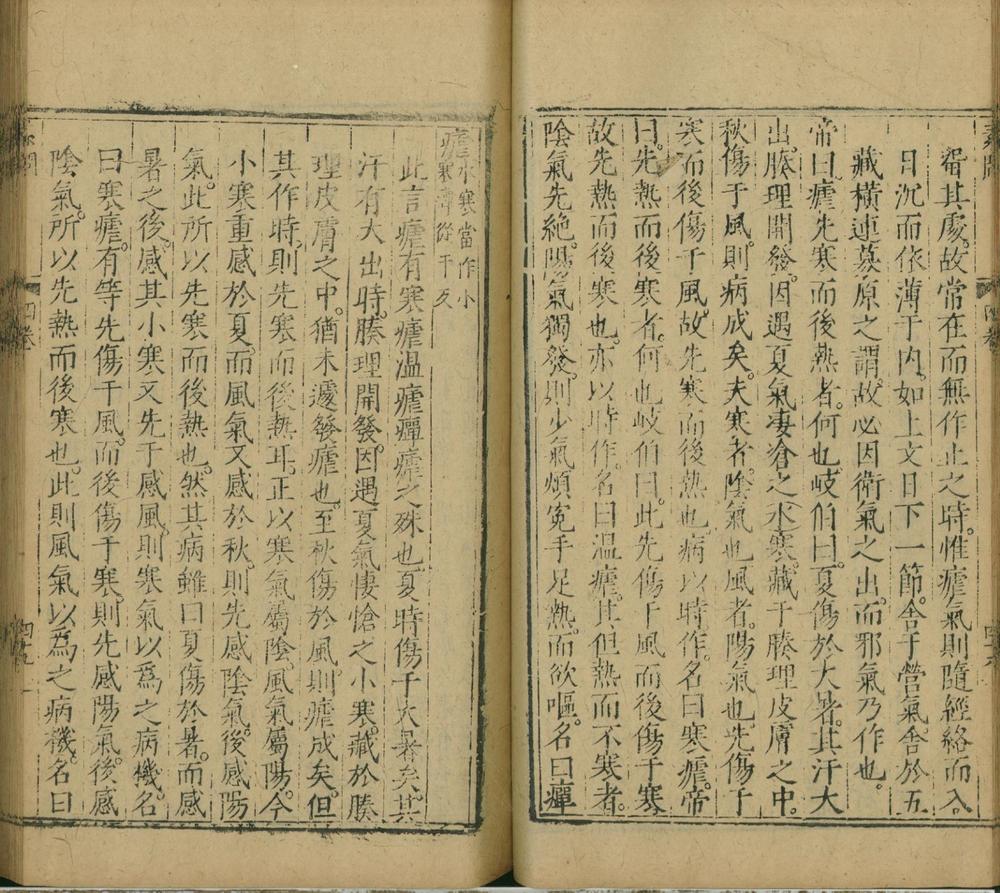 畱其處故常在而無作止之時惟瘧氣則隨經絡而入
日沉而依薄于内如上文日下一節舍于營氣舍於五
藏橫連募原之謂故必因衛氣之出而邪氣乃作也
帝曰瘧先寒而後熱者何也岐伯曰夏傷於大暑其汗大
出腠理開發因遇夏氣凄滄之水寒藏于腠理皮膚之中
秋傷于風則病成矣夫寒者陰氣也風者陽氣也先傷于
寒而後傷于風故先寒而後熱也病以時作名曰寒瘧帝
曰先熱而後寒者何也岐伯曰此先傷于風而後傷于寒
故先熱而後寒也亦以時作名曰温瘧其但熱而不寒者
陰氣先絶陽氣獨發則少氣煩寃手足熱而欲嘔名曰癉
瘧水寒當作小
此言瘧有寒瘧温瘧癉瘧之殊也夏時傷于大暑矣其
汗有大出時腠理開發因遇夏氣悽愴之小寒藏於腠
理皮膚之中猶未遽發瘧也至秋傷於風則瘧成矣但
其作時則先寒而後熱耳正以寒氣屬陰風氣屬陽今
小寒重感於夏而風氣又感於秋則先感陰氣後感陽
氣此所以先寒而後熱也然其病雖曰夏傷於暑而感
暑之後感其小寒又先于感風則寒氣以爲之病機名
曰寒瘧有等先傷于風而後傷于寒則先感陽氣後感
陰氣所以先熱而後寒也此則風氣以爲之病機名曰
四卷